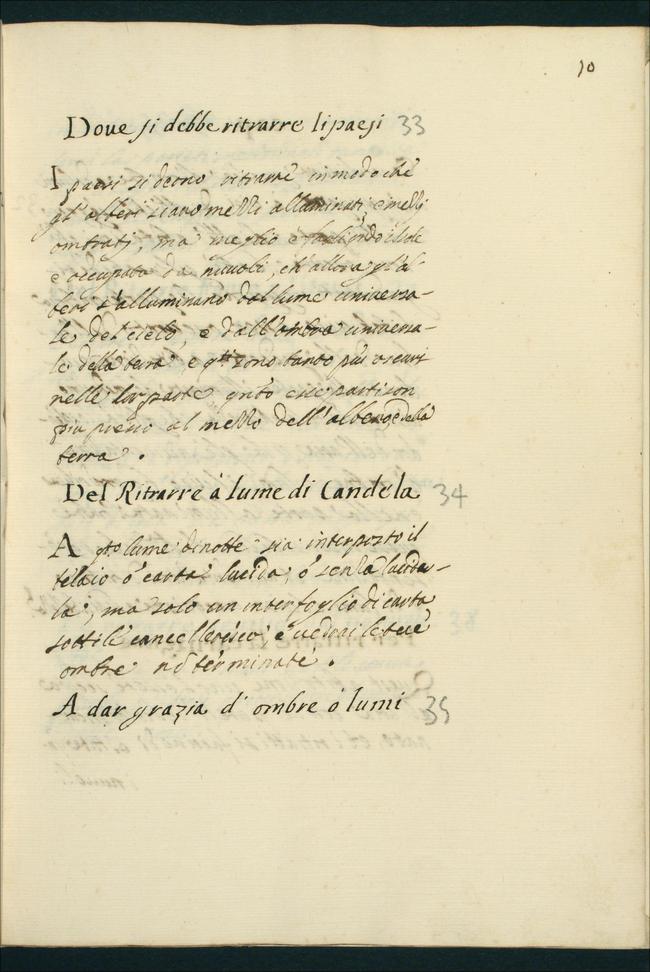 10
Doue si debbe ritrarre li paesi 33
I paesi si deono ritrarre in modo che
gl' alberi siano mezzi alluminati, e mezzi
ombrati, ma meglio è quando il sole
è occupato da nuuoli, ch' allora gl' al-
beri s' alluminano dal lume uniuersa-
le del cielo, e dall' ombra uniuersa-
le della terra e qsti sono tanto più oscuri
nelle lor parte, qnto esse parti son
più presso al mezzo dell' albero, e della
terra .
Del Ritrarre à lume di Candela 34
A qsto lume di notte sia interposto il
telaio ò carta lucida, ò senza lucida-
la, ma solo un interfoglio di carta
sottile cancelleresca, e uedrai le tue
ombre nō terminate .
A dar grazia d' ombre ò lumi 35